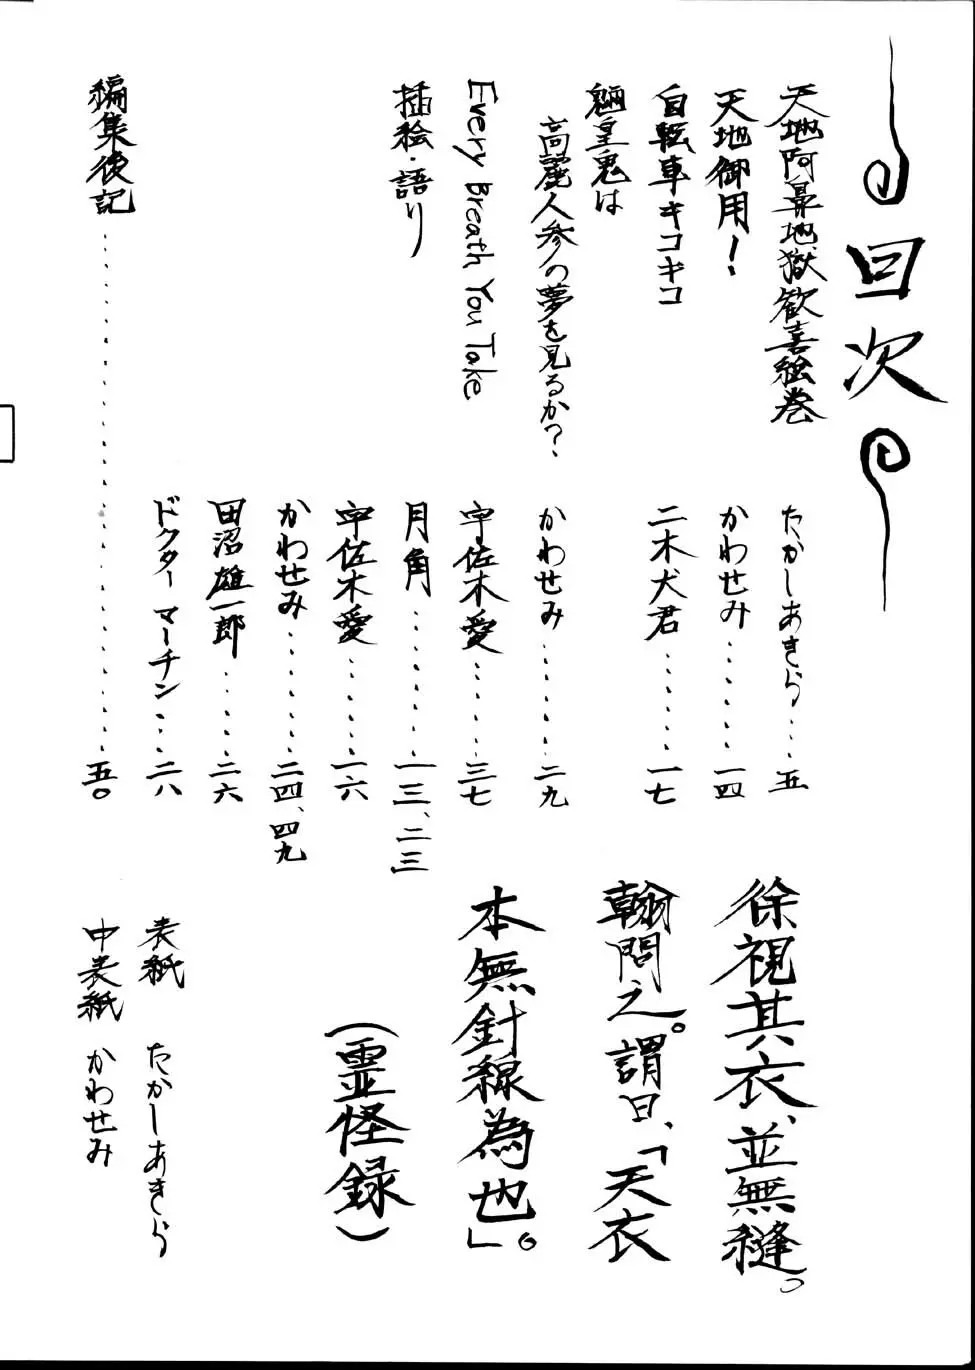 目次
天地阿鼻地獄歓喜絵巻
たかしあきら・・・・五
天地御用！
かわせみ・・・・・・一四
自転車キコキコ
二木犬君・・・・・・一七
魎皇鬼は
高麗人参の夢を見るか？
かわせみ・・・・・・二九
Every Breath You Take
宇佐木愛・・・・・・三七
插絵・語り
月角・・・・・・・・一三、二三
宇佐木愛・・・・・・一六
かわせみ・・・・・・二四、四九
田沼雄一郎・・・・・・二六
ドクターマーチン・・・・二八
編集後記・・・・・・・・・・・・・・・・・・・・五〇
徐視其衣、並無縫。
翰問之。謂曰、「天衣
本無針線為也」。
（霊怪録）
表紙 たかしあきら
中表紙 かわせみ